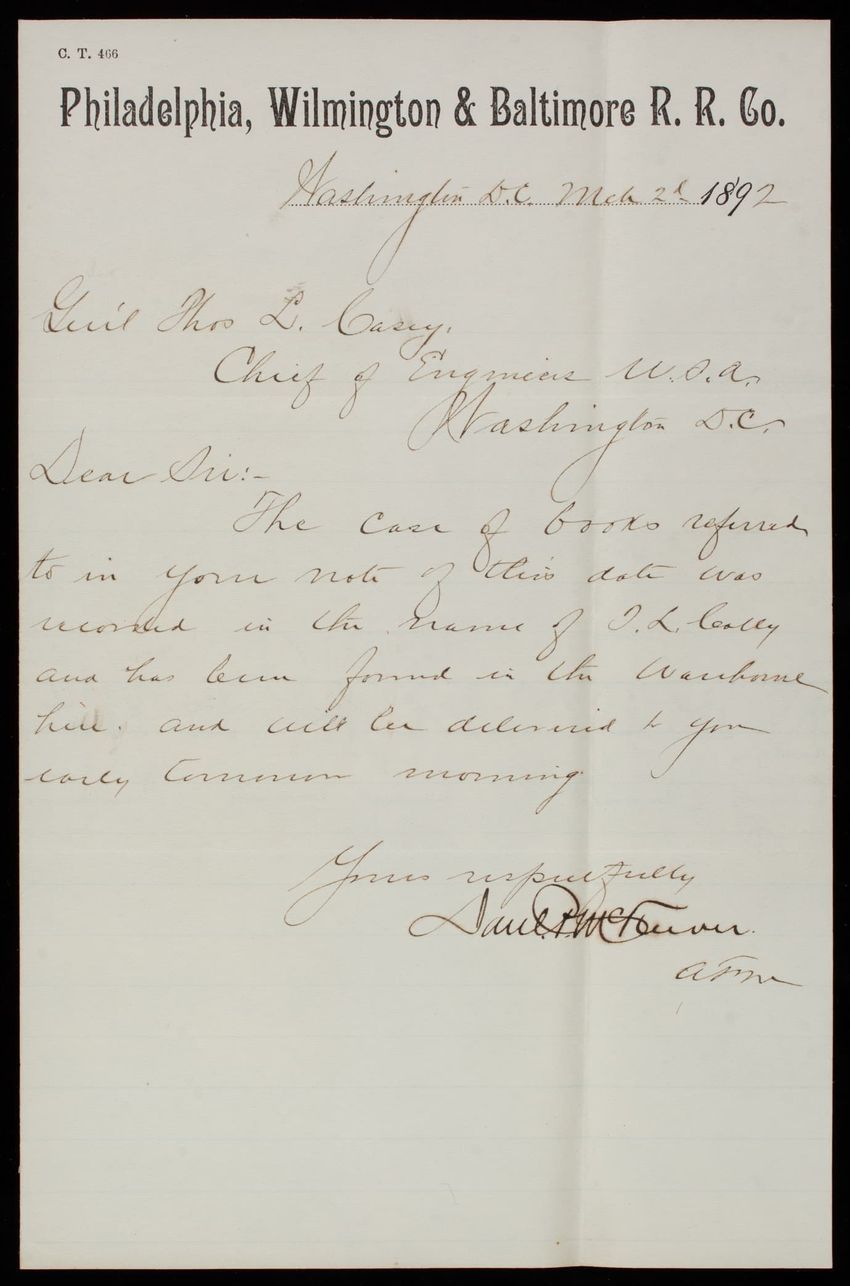 C. T. 466
Philadelphia, Wilmington & Baltimore R. R. Co.
Washington D.C. Mch 2d 1892
Gen'l Thos L. Casey,
Chief of Engineers U.S.A.
Washington D.C.
Dear Sir:-
The case of books referred
to in your note of this date was
received in the name of T. L. Colly
and has been found in the Warehouse
here. and will be delivered to you
early tomorrow morning.
Yours respectfully